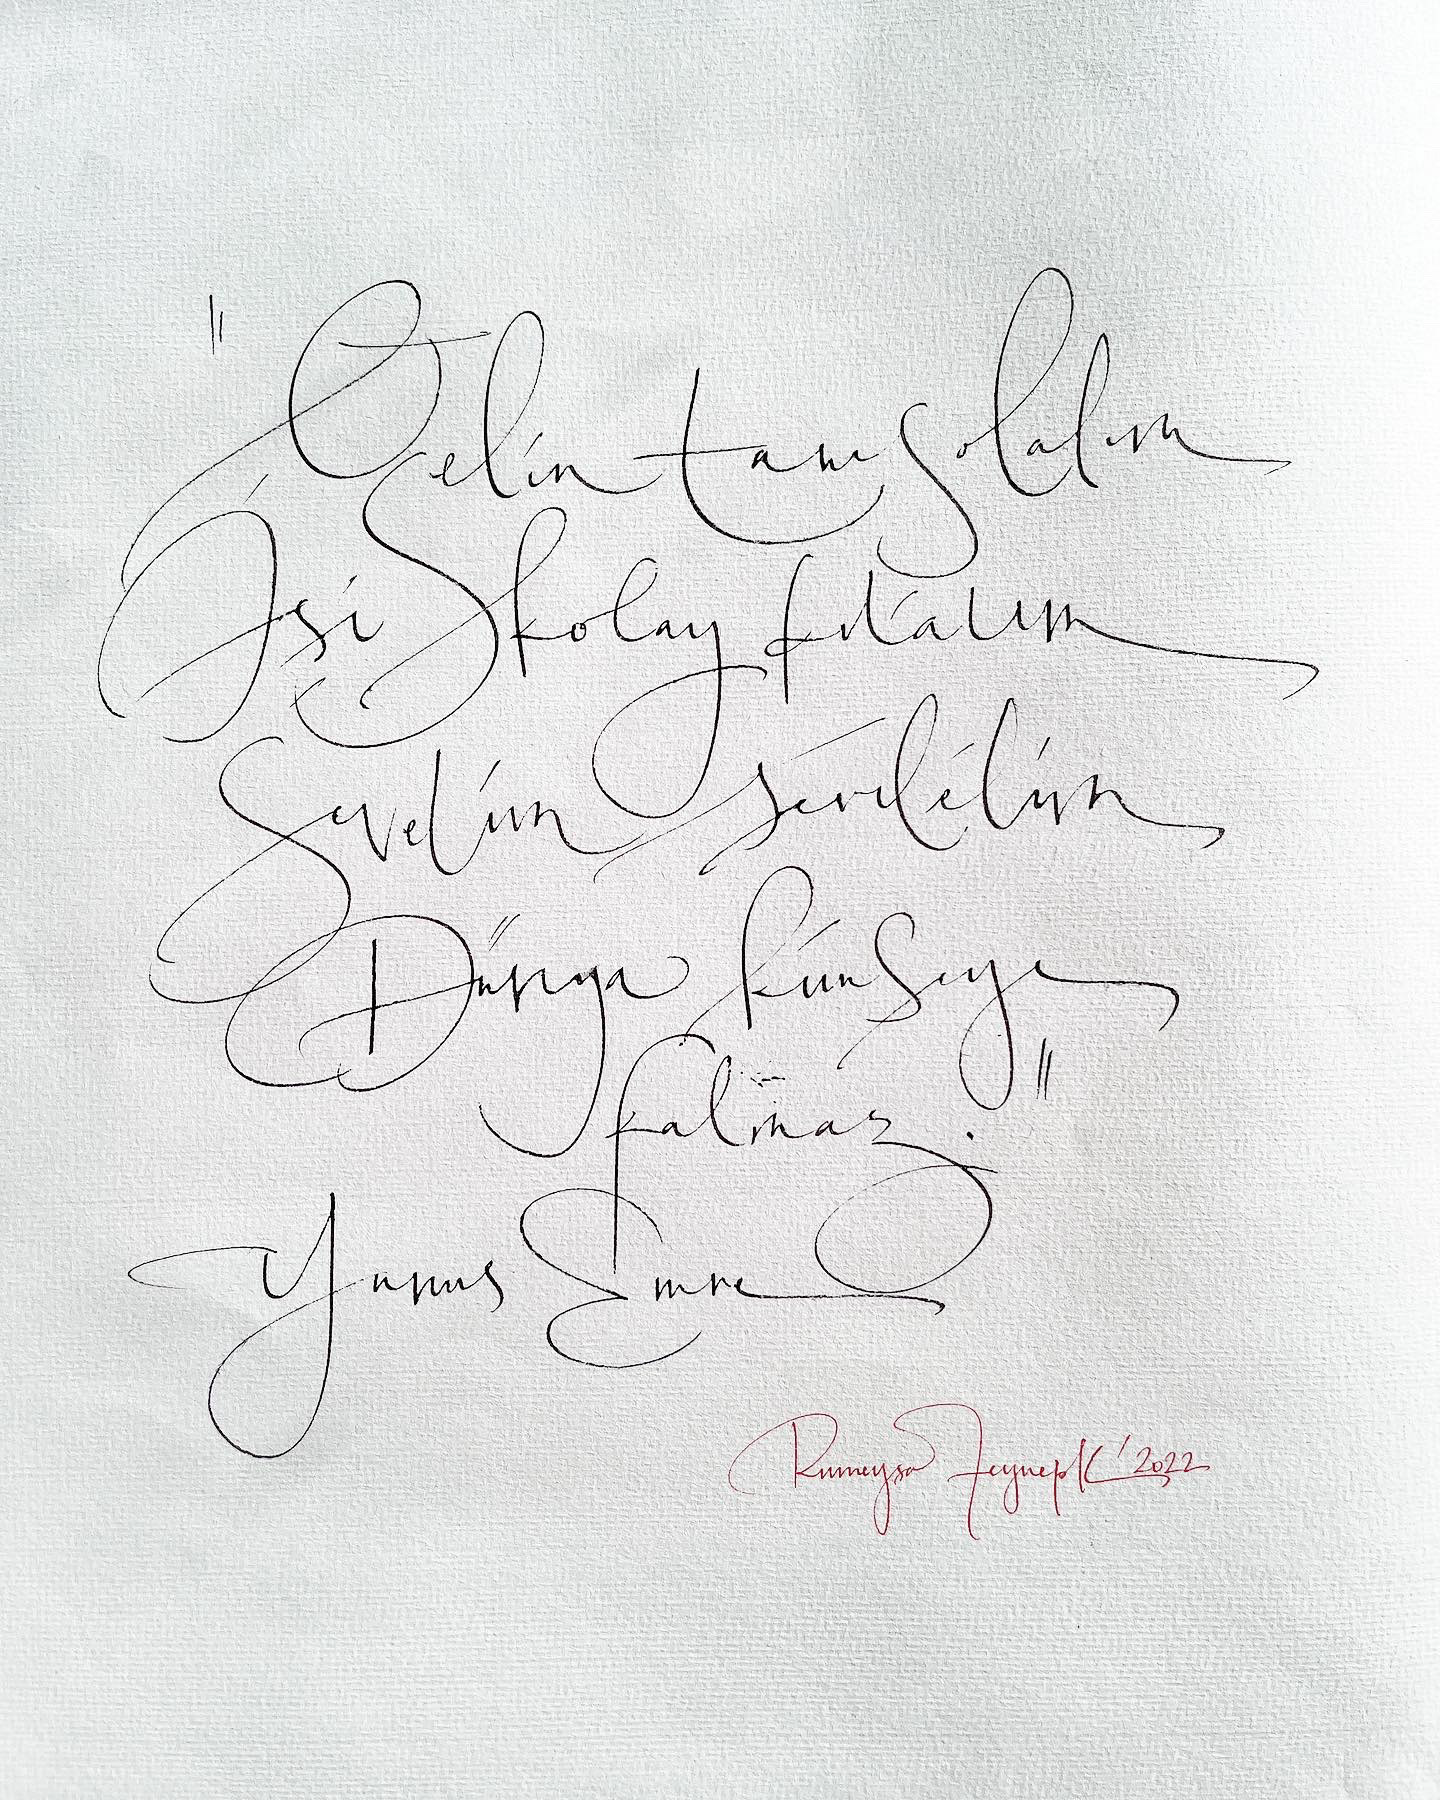 "Gelin tanış olalım
İşi kolay kılalım
Sevelim sevilelim
Dünya kimseye
kalmaz."
Yunus Emre
Rumeysa Zeynep K '2022